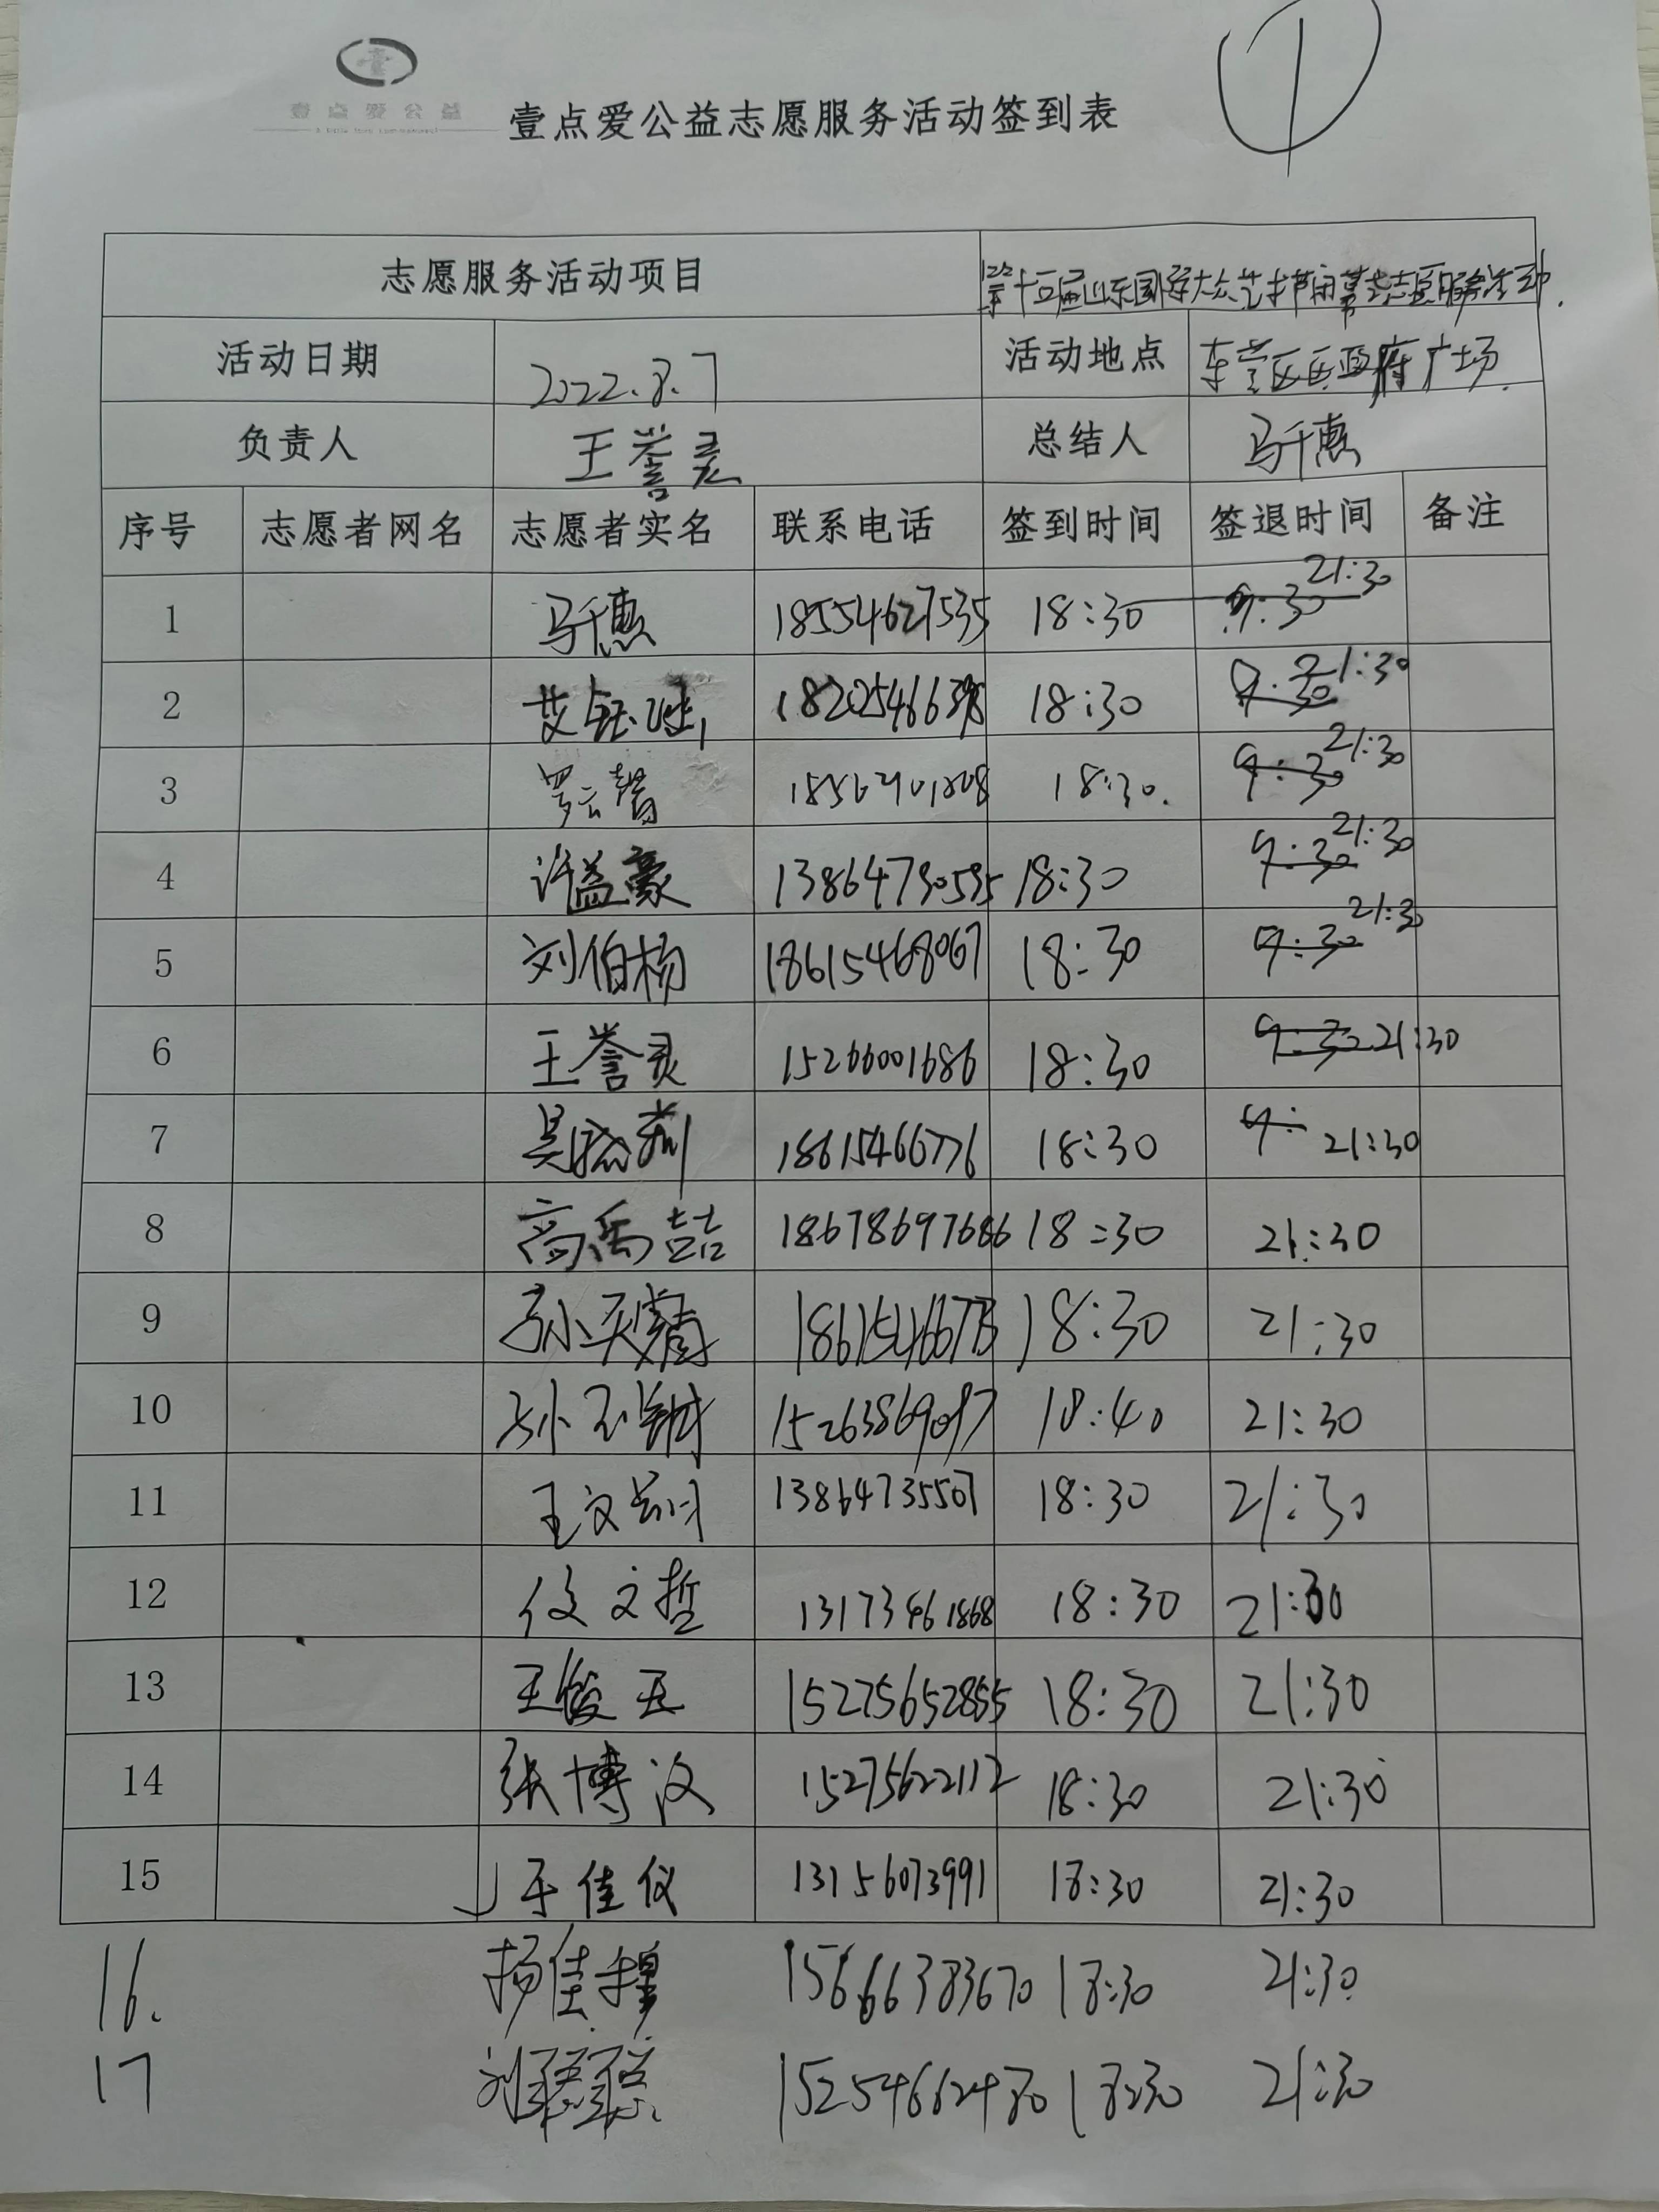 ①
壹点爱公益
壹点爱公益志愿服务活动签到表
志愿服务活动项目 第十五届山东国际大众艺术节闭幕式志愿服务活动.
活动日期 2022.8.7 活动地点 东营区区政府广场.
负责人 王誉灵 总结人 马千惠
序号 志愿者网名 志愿者实名 联系电话 签到时间 签退时间 备注
1 马千惠 18554627535 18:30 9:30 21:30
2 18:30 9:30 21:30
3 罗云馨 18:30. 9:30 21:30
4 许益豪 13864730595 18:30 9:30 21:30
5 刘伯杨 18615468067 18:30 9:30 21:30
6 王誉灵 15266001686 18:30 9:30 21:30
7 18615466776 18:30 9: 21:30
8 高禹喆 18678697686 18:30 21:30
9 18:30 21:30
10 15263869097 18:40 21:30
11 13864735507 18:30 21:30
12 文哲 13173461868 18:30 21:30
13 王俊 15275652855 18:30 21:30
14 张博汶 15275622112 18:30 21:30
15 于佳仪 13156073991 18:30 21:30
16. 杨佳 15666383670 18:30 21:30
17 刘 15254662480 18:30 21:30